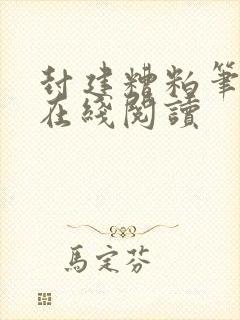 封建糟粕筆
在綫閱讀
馬定芬